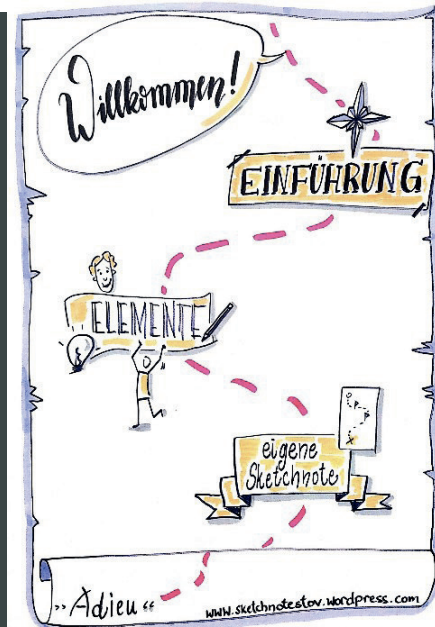 Willkommen!
EINFÜHRUNG
ELEMENTE
eigene
Sketchnote
„Adieu“
www.sketchnotestov.wordpress.com